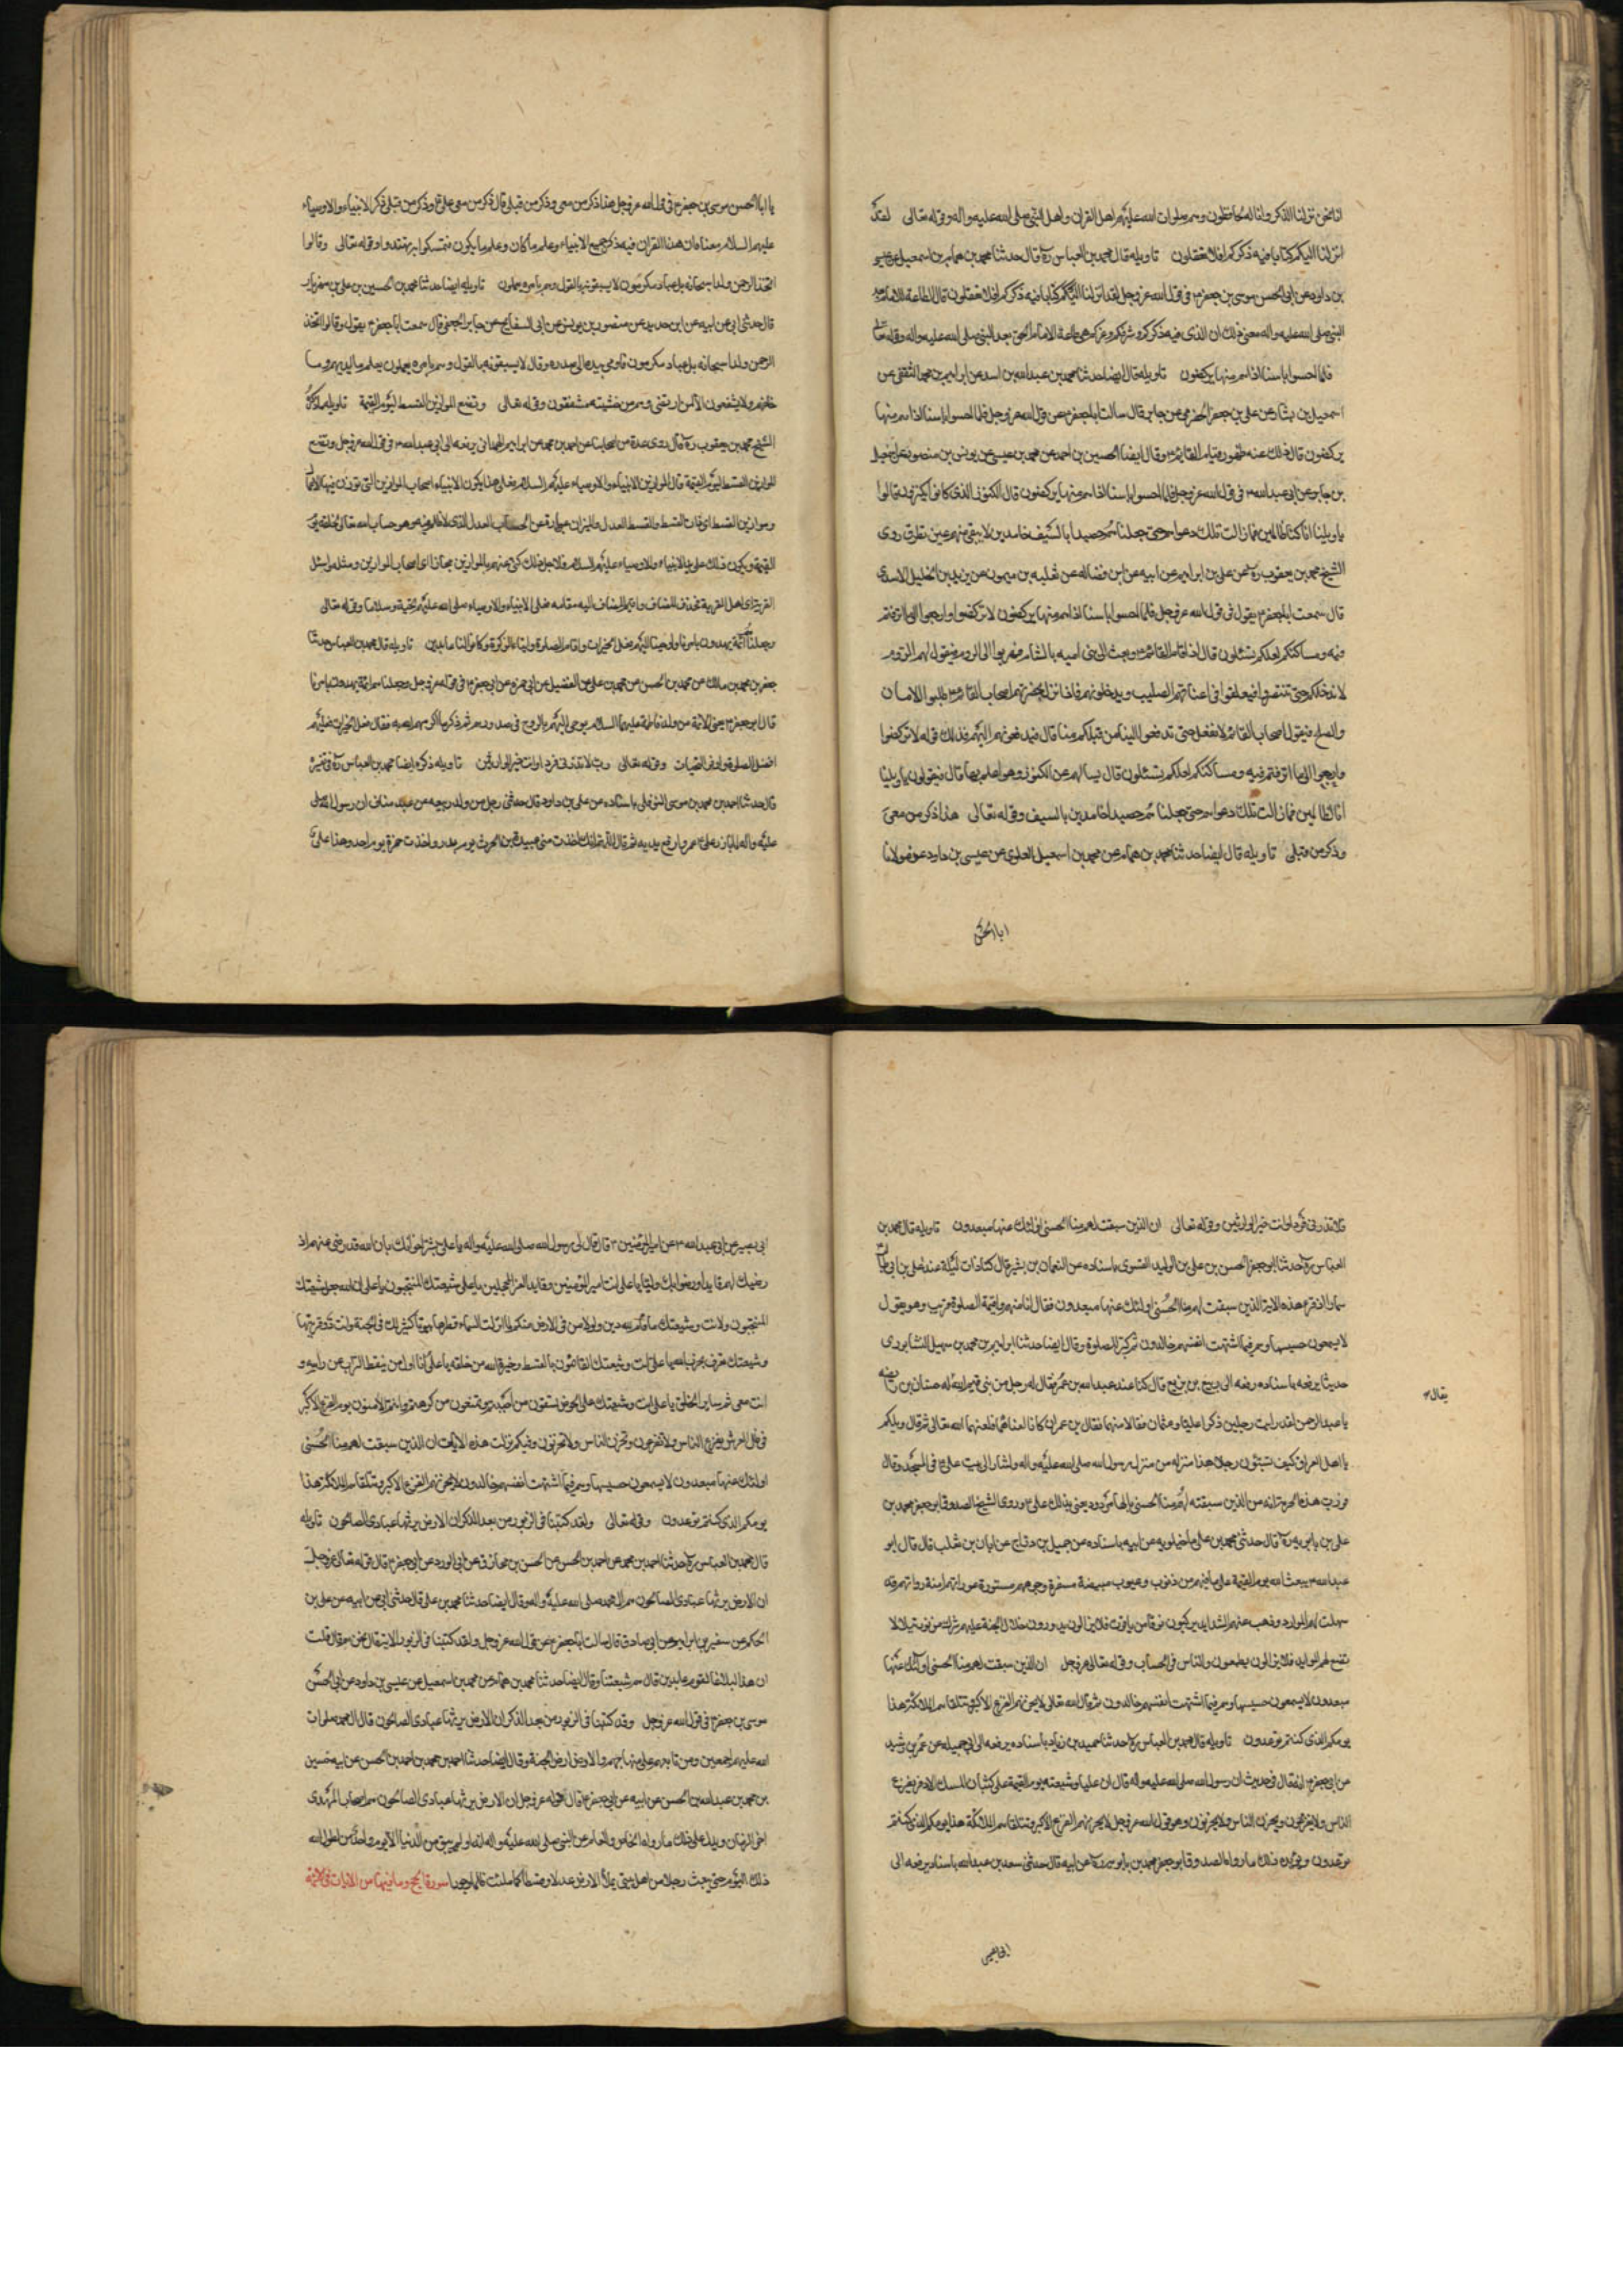 انا نحن نزلنا الذكر وانا له لحافظون وهم صلوات الله عليهم اهل القران واهل النبي صلى الله عليه واله وقوله تعالى لقد
انزلنا اليكم كتابا فيه ذكركم افلا تعقلون تاويله قال محمد بن العباس ره قال حدثنا محمد بن همام بن اسمعيل عن عيسى
بن داود عن ابي الحسن موسى بن جعفر ع في قول الله عز وجل لقد انزلنا اليكم كتابا فيه ذكركم افلا تعقلون قال الطاعة للامام بعد
النبي صلى الله عليه واله معنى ذلك ان الذي فيه ذكركم وشرفكم وعزكم هي طاعة الامام الحق بعد النبي صلى الله عليه واله وقوله تعالى
فلما احسوا باسنا اذا هم منها يركضون تاويله قال ايضا حدثنا محمد بن عبدالله بن اسد عن ابراهيم بن محمد الثقفي عن
اسمعيل بن بشار عن علي بن جعفر الحضرمي عن جابر قال سالت ابا جعفر ع عن قول الله عز وجل فلما احسوا باسنا اذا هم منها
يركضون قال ذلك عند ظهور وقيام القائم ع وقال ايضا الحسين بن احمد عن محمد بن عيسى عن يونس بن منصور عن اسمعيل
بن جابر عن ابي عبدالله ع في قول الله عز وجل فلما احسوا باسنا اذا هم منها يركضون قال الكنوز الذي كانوا يكنزون قالوا
يا ويلنا انا كنا ظالمين فما زالت تلك دعواهم حتى جعلناهم حصيدا بالسيف خامدين لا يبقى منهم عين تطرق روى
الشيخ محمد بن يعقوب ره عن علي بن ابراهيم عن ابيه عن ابن فضاله عن ثعلبه بن ميمون عن بن الخليل الاسدي
قال سمعت ابا جعفر ع يقول في قول الله عز وجل فلما احسوا باسنا اذا هم منها يركضون لا تركضوا وارجعوا الى ما اترفتم
فيه ومساكنكم لعلكم تسئلون قال اذا قام القائم ع وبعث الى بني اميه بالشام هربوا الى الروم فيقول لهم الروم
لا ندخلكم حتى تتنصروا فيعلقوا في اعناقهم الصليب ويدخلونهم فاذا نزل بحضرتهم اصحاب القائم ع طلبوا الامان
والصلح فيقول اصحاب القائم لا نفعل حتى تدفعوا الينا من قبلكم منا قال فيدفعونهم اليهم فذلك قوله لا تركضوا
وارجعوا الى ما اترفتم فيه ومساكنكم لعلكم تسئلون قال يسالهم عن الكنوز وهو اعلم بها قال فيقولون يا ويلنا
انا ظالمين فما زالت تلك دعواهم حتى جعلناهم حصيدا خامدين بالسيف وقوله تعالى هذا ذكر من معي
وذكر من قبلي تاويله قال ايضا حدثنا محمد بن همام عن محمد بن اسمعيل العلوي عن عيسى بن داود عن مولانا
ابا الحسن
يا ابا الحسن موسى بن جعفر ع في قول الله عز وجل هذا ذكر من معي وذكر من قبلي قال ذكر من معي علي ع وذكر من قبلي ذكر الانبياء والاوصياء
عليهم السلام معناه ان هذا القران فيه ذكر جميع الانبياء وعلم ما كان وعلم ما يكون فتمسكوا به تهتدوا وقوله تعالى وقالوا
اتخذ الرحمن ولدا سبحانه بل عباد مكرمون لا يسبقونه بالقول وهم بامره يعملون تاويله ايضا حدثنا محمد بن الحسين بن علي بن مهزيار
قال حدثني ابي عن ابيه عن ابن حديد عن منصور بن يونس عن ابي السفاتج عن جابر الجعفي قال سمعت ابا جعفر ع يقول وقالوا اتخذ
الرحمن ولدا سبحانه بل عباد مكرمون فاومى بيده الى صدره وقال لا يسبقونه بالقول وهم بامره يعملون يعلم ما بين ايديهم وما
خلفهم ولا يشفعون الا لمن ارتضى وهم من خشيته مشفقون وقوله تعالى ونضع الموازين القسط ليوم القيمة تاويله ما ذكره
الشيخ محمد بن يعقوب ره قال روى عدة من اصحابنا عن احمد بن محمد عن ابراهيم الهمداني يرفعه الى ابي عبدالله ع في قول الله عز وجل ونضع
الموازين القسط ليوم القيمة قال الموازين الانبياء والاوصياء عليهم السلام فعلى هذا يكون الانبياء اصحاب الموازين التي توزن فيها الاعمال
وموازين القسط اي ذات القسط والقسط العدل والميزان عبارة عن الحساب العدل الذي لا ظلم فيه وهو حساب الله تعالى لخلقه يوم
القيمة ويكون ذلك على يد الانبياء والاوصياء عليهم السلام فلاجل ذلك كنى عنهم بالموازين مجازا اي اصحاب الموازين ومثله واسئل
القرية اي اهل القرية فحذف المضاف واقيم المضاف اليه مقامه فعلى الانبياء والاوصياء صلى الله عليهم تحية وسلاما وقوله تعالى
وجعلناهم ائمة يهدون بامرنا واوحينا اليهم فعل الخيرات واقام الصلوة وايتاء الزكوة وكانوا لنا عابدين تاويله قال محمد بن العباس حدثنا
جعفر بن محمد بن مالك عن محمد بن الحسن عن محمد بن علي عن الفضيل عن ابي حمزه عن ابي جعفر ع في قوله عز وجل وجعلناهم ائمة يهدون بامرنا
قال ابو جعفر ع يعني الائمة من ولد فاطمة عليها السلام يوحى اليهم بالروح في صدورهم ثم ذكر ما اكرمهم الله به فقال فعل الخيرات فعليهم
افضل الصلوة واوفى التحيات وقوله تعالى رب لا تذرني فردا وانت خير الوارثين تاويله ذكره ايضا محمد بن العباس ره في تفسيره
قال حدثنا احمد بن محمد بن موسى النوفلي باسناده عن علي بن داود قال حدثني رجل من ولد ربيعه من عبد مناف ان رسول الله صلى
عليه واله لما بارز علي ع عمرو رفع يديه ثم قال اللهم انك اخذت مني عبيدة بن الحرث يوم بدر واخذت حمزة يوم احد وهذا علي
فلا تذرني فردا وانت خير الوارثين وقوله تعالى ان الذين سبقت لهم منا الحسنى اولئك عنها مبعدون تاويله قال محمد بن
العباس ره حدثنا ابو جعفر الحسن بن علي بن الوليد الفسوي باسناده عن النعمان بن بشير قال كنا ذات ليلة عند علي بن ابي طالب
سمارا اذ قرء هذه الاية ان الذين سبقت لهم منا الحسنى اولئك عنها مبعدون فقال انا منهم واقيمة الصلوة فوثب وهو يقول
لا يسمعون حسيسها وهم فيما اشتهت انفسهم خالدون ثم كبر للصلوة وقال ايضا حدثنا ابراهيم بن محمد بن سهيل النيشابوري
حديثا يرفعه باسناده رفعه الى ربيع بن بزيع قال كنا عند عبدالله بن عمر فقال له رجل من بني تيم الله له حسان بن راضيه
يقال ع
يا عبد الرحمن لقد رايت رجلين ذكرا عليا وعثمان فنالا منهما فقال بن عمر ان كانا لعناهما فلعنهما الله تعالى ثم قال ويلكم
يا اهل العراق كيف تسبون رجلا هذا منزله من منزل رسول الله صلى الله عليه واله واشار الى بيت علي ع في المسجد وقال
فورب هذه الحرمة انه من الذين سبقت لهم منا الحسنى مالها مردود يعني بذلك علي ع وروى الشيخ الصدوق ابو جعفر محمد بن
علي بن بابويه ره قال حدثني محمد بن علي ماجيلويه عن ابيه باسناده عن جميل بن دراج عن ابان بن تغلب قال قال ابو
عبدالله ع يبعث الله يوم القيمة على ما فيهم من ذنوب وعيوب مبيضة مسفرة وجوههم مستورة عوراتهم امنة روعاتهم قد
سهلت لهم الموارد وذهبت عنهم الشدايد يركبون نوقا من ياقوت فلا يزالون يدورون خلال الجنة عليهم شراك من نور يتلالا
توضع لهم الموايد فلا يزالون يطعمون والناس في الحساب وقوله تعالى عز وجل ان الذين سبقت لهم منا الحسنى اولئك عنها
مبعدون لا يسمعون حسيسها وهم فيما اشتهت انفسهم خالدون ثم قال الله تعالى لا يحزنهم الفزع الاكبر وتتلقاهم الملائكة هذا
يومكم الذي كنتم توعدون تاويله قال محمد بن العباس ره حدثنا حميد بن زياد باسناده يرفعه الى ابي جميله عن عمر بن رشيد
عن ابي جعفر ع انه قال في حديث ان رسول الله صلى الله عليه واله قال ان عليا وشيعته يوم القيمة على كثبان المسك الاذفر يفزع
الناس ولا يفزعون ويحزن الناس ولا يحزنون وهو قول الله عز وجل لا يحزنهم الفزع الاكبر وتتلقاهم الملائكة هذا يومكم الذي كنتم
توعدون ويؤيده ذلك ما رواه الصدوق ابو جعفر محمد بن بابويه ره عن ابيه قال حدثني سعد بن عبدالله باسناده يرفعه الى
ابي بصير
ابي بصير عن ابي عبدالله ع عن امير المؤمنين ع قال قال لي رسول الله صلى الله عليه واله يا علي بشر اخوانك بان الله قد رضي عنهم اذ
رضيك لهم قايدا ورضوا بك وليا يا علي انت امير المؤمنين وقايد الغر المحجلين يا علي شيعتك المنتجبون يا علي لولا انت وشيعتك
المنتجبون ولا انت وشيعتك ما قام لله دين ولولا من في الارض منكم لما انزلت السماء قطرها يا علي لك كنز في الجنة وانت ذو قرنيها
وشيعتك تعرف بحزب الله يا علي انت وشيعتك القائمون بالقسط وخيرة الله من خلقه يا علي انا اول من ينفض التراب عن راسه و
انت معي ثم ساير الخلق يا علي انت وشيعتك على الحوض تسقون من احببتم وتمنعون من كرهتم وانتم الامنون يوم الفزع الاكبر
في ظل العرش يفزع الناس ولا تفزعون وتحزن الناس ولا تحزنون وفيكم نزلت هذه الايات ان الذين سبقت لهم منا الحسنى
اولئك عنها مبعدون لا يسمعون حسيسها وهم فيما اشتهت انفسهم خالدون لا يحزنهم الفزع الاكبر وتتلقاهم الملائكة هذا
يومكم الذي كنتم توعدون وقوله تعالى ولقد كتبنا في الزبور من بعد الذكر ان الارض يرثها عبادي الصالحون تاويله
قال محمد بن العباس ره حدثنا احمد بن محمد عن احمد بن الحسن عن الحسن بن مخارق عن ابي الورد عن ابي جعفر ع قال قوله تعالى عز وجل
ان الارض يرثها عبادي الصالحون هم ال محمد صلى الله عليه واله وقال ايضا حدثنا محمد بن علي قال حدثني ابي عن ابيه عن علي بن
الحكم عن سفين بن ابراهيم عن ابي صادق قال سالت ابا جعفر ع عن قول الله عز وجل ولقد كتبنا في الزبور الاية قال نحن هم قال قلت
ان هذا لبلاغا لقوم عابدين قال هم شيعتنا وقال ايضا حدثنا محمد بن همام عن محمد بن اسمعيل عن عيسى بن داود عن ابي الحسن
موسى بن جعفر ع في قول الله عز وجل ولقد كتبنا في الزبور من بعد الذكر ان الارض يرثها عبادي الصالحون قال ال محمد صلوات
الله عليهم اجمعين ومن تابعهم على منهاجهم والارض ارض الجنة وقال ايضا حدثنا احمد بن محمد بن احمد بن الحسن عن ابيه حسين
بن محمد بن عبدالله بن الحسن عن ابيه عن ابي جعفر ع قال قوله عز وجل ان الارض يرثها عبادي الصالحون هم اصحاب المهدي
اخر الزمان ويدل على ذلك ما رواه الخاص والعام عن النبي صلى الله عليه واله انه لو لم يبق من الدنيا الا يوم واحد لطول الله
ذلك اليوم حتى يبعث رجلا من اهل بيتي يملأ الارض عدلا وقسطا كما ملئت ظلما وجورا سورة الحج وما فيها من الايات في الائمة